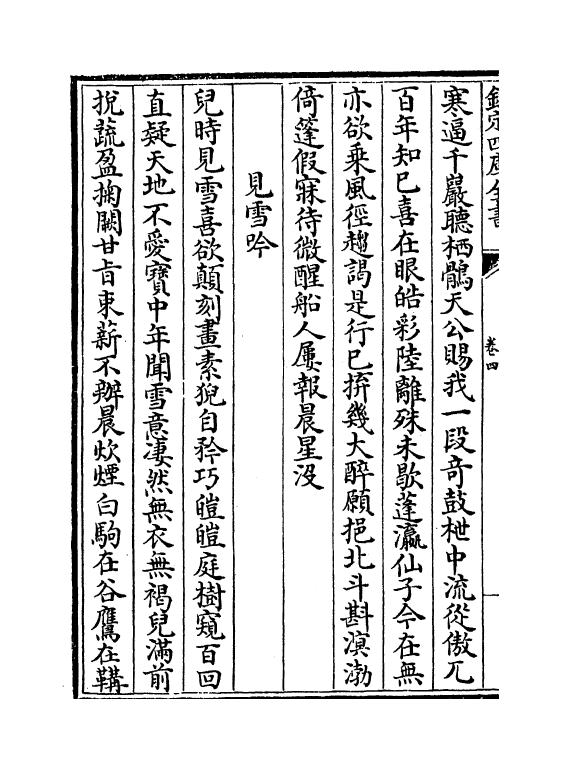 欽定四庫全書
卷四
寒逼千巖聽栖鶻天公賜我一段竒鼓枻中流從傲兀
百年知已喜在眼皓彩陸離殊未歇蓬瀛仙子今在無
亦欲乗風徑趨謁是行已拚幾大醉願挹北斗斟溟渤
倚篷假寐待微醒船人屢報晨星没
見雪吟
兒時見雪喜欲顛刻畫素猊自矜巧皚皚庭樹窺百回
直疑天地不愛寶中年聞雪意凄然無衣無褐兒滿前
挩蔬盈掬闕甘旨束薪不辦晨炊煙白駒在谷鷹在鞲